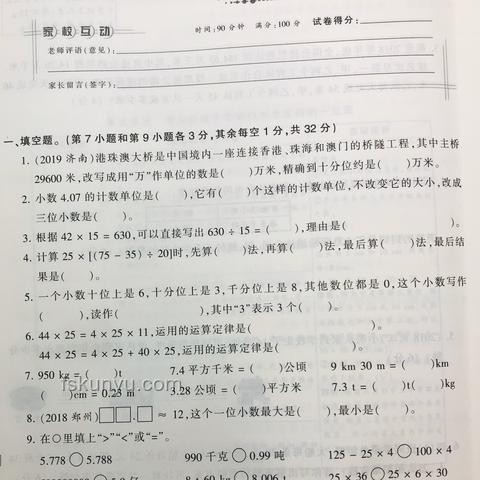 家校互动
时间:90分钟 满分:100分 试卷得分:
老师评语(意见):
家长留言(签字):
一、填空题。(第7小题和第9小题各3分,其余每空1分,共32分)
1. (2019 济南)港珠澳大桥是中国境内一座连接香港、珠海和澳门的桥隧工程,其中主桥
29600 米,改写成用“万”作单位的数是( )万米,精确到十分位约是( )万米。
2. 小数 4.07 的计数单位是( ),它有( )个这样的计数单位,不改变它的大小,改成
三位小数是( )。
3. 根据 42 × 15 = 630,可以直接写出 630 ÷ 15 = ( ),理由是( )。
4. 计算 25 × [(75 − 35) ÷ 20]时,先算( )法,再算( )法,最后算( )法,最后结
果是( )。
5. 一个小数十位上是 6,十分位上是 3,千分位上是 8,其他数位都是 0,这个小数写作
( ),读作( ),其中“3”表示 3 个( )。
6. 44 × 25 = 4 × 25 × 11,运用的运算定律是( )。
44 × 25 = 4 × 25 + 40 × 25,运用的运算定律是( )。
7. 950 kg = ( )t 7.4 平方千米 = ( )公顷 9 km 30 m = ( )km
( )cm = 0.23 m 3.28 公顷 = ( )平方米 7.3 t = ( )t( )kg
fskunyu.com
8. (2018 郑州)□□.□ ≈ 12,这个一位小数最大是( ),最小是( )。
9. 在○里填上“>”“<”或“=”。
5.778 ○ 5.788 990 千克 ○ 0.99 吨 125 − 25 × 4 ○ 100 × 4
8 t 60 kg ○ 8.006 t 25 × 36 ○ 25 × 6 × 30